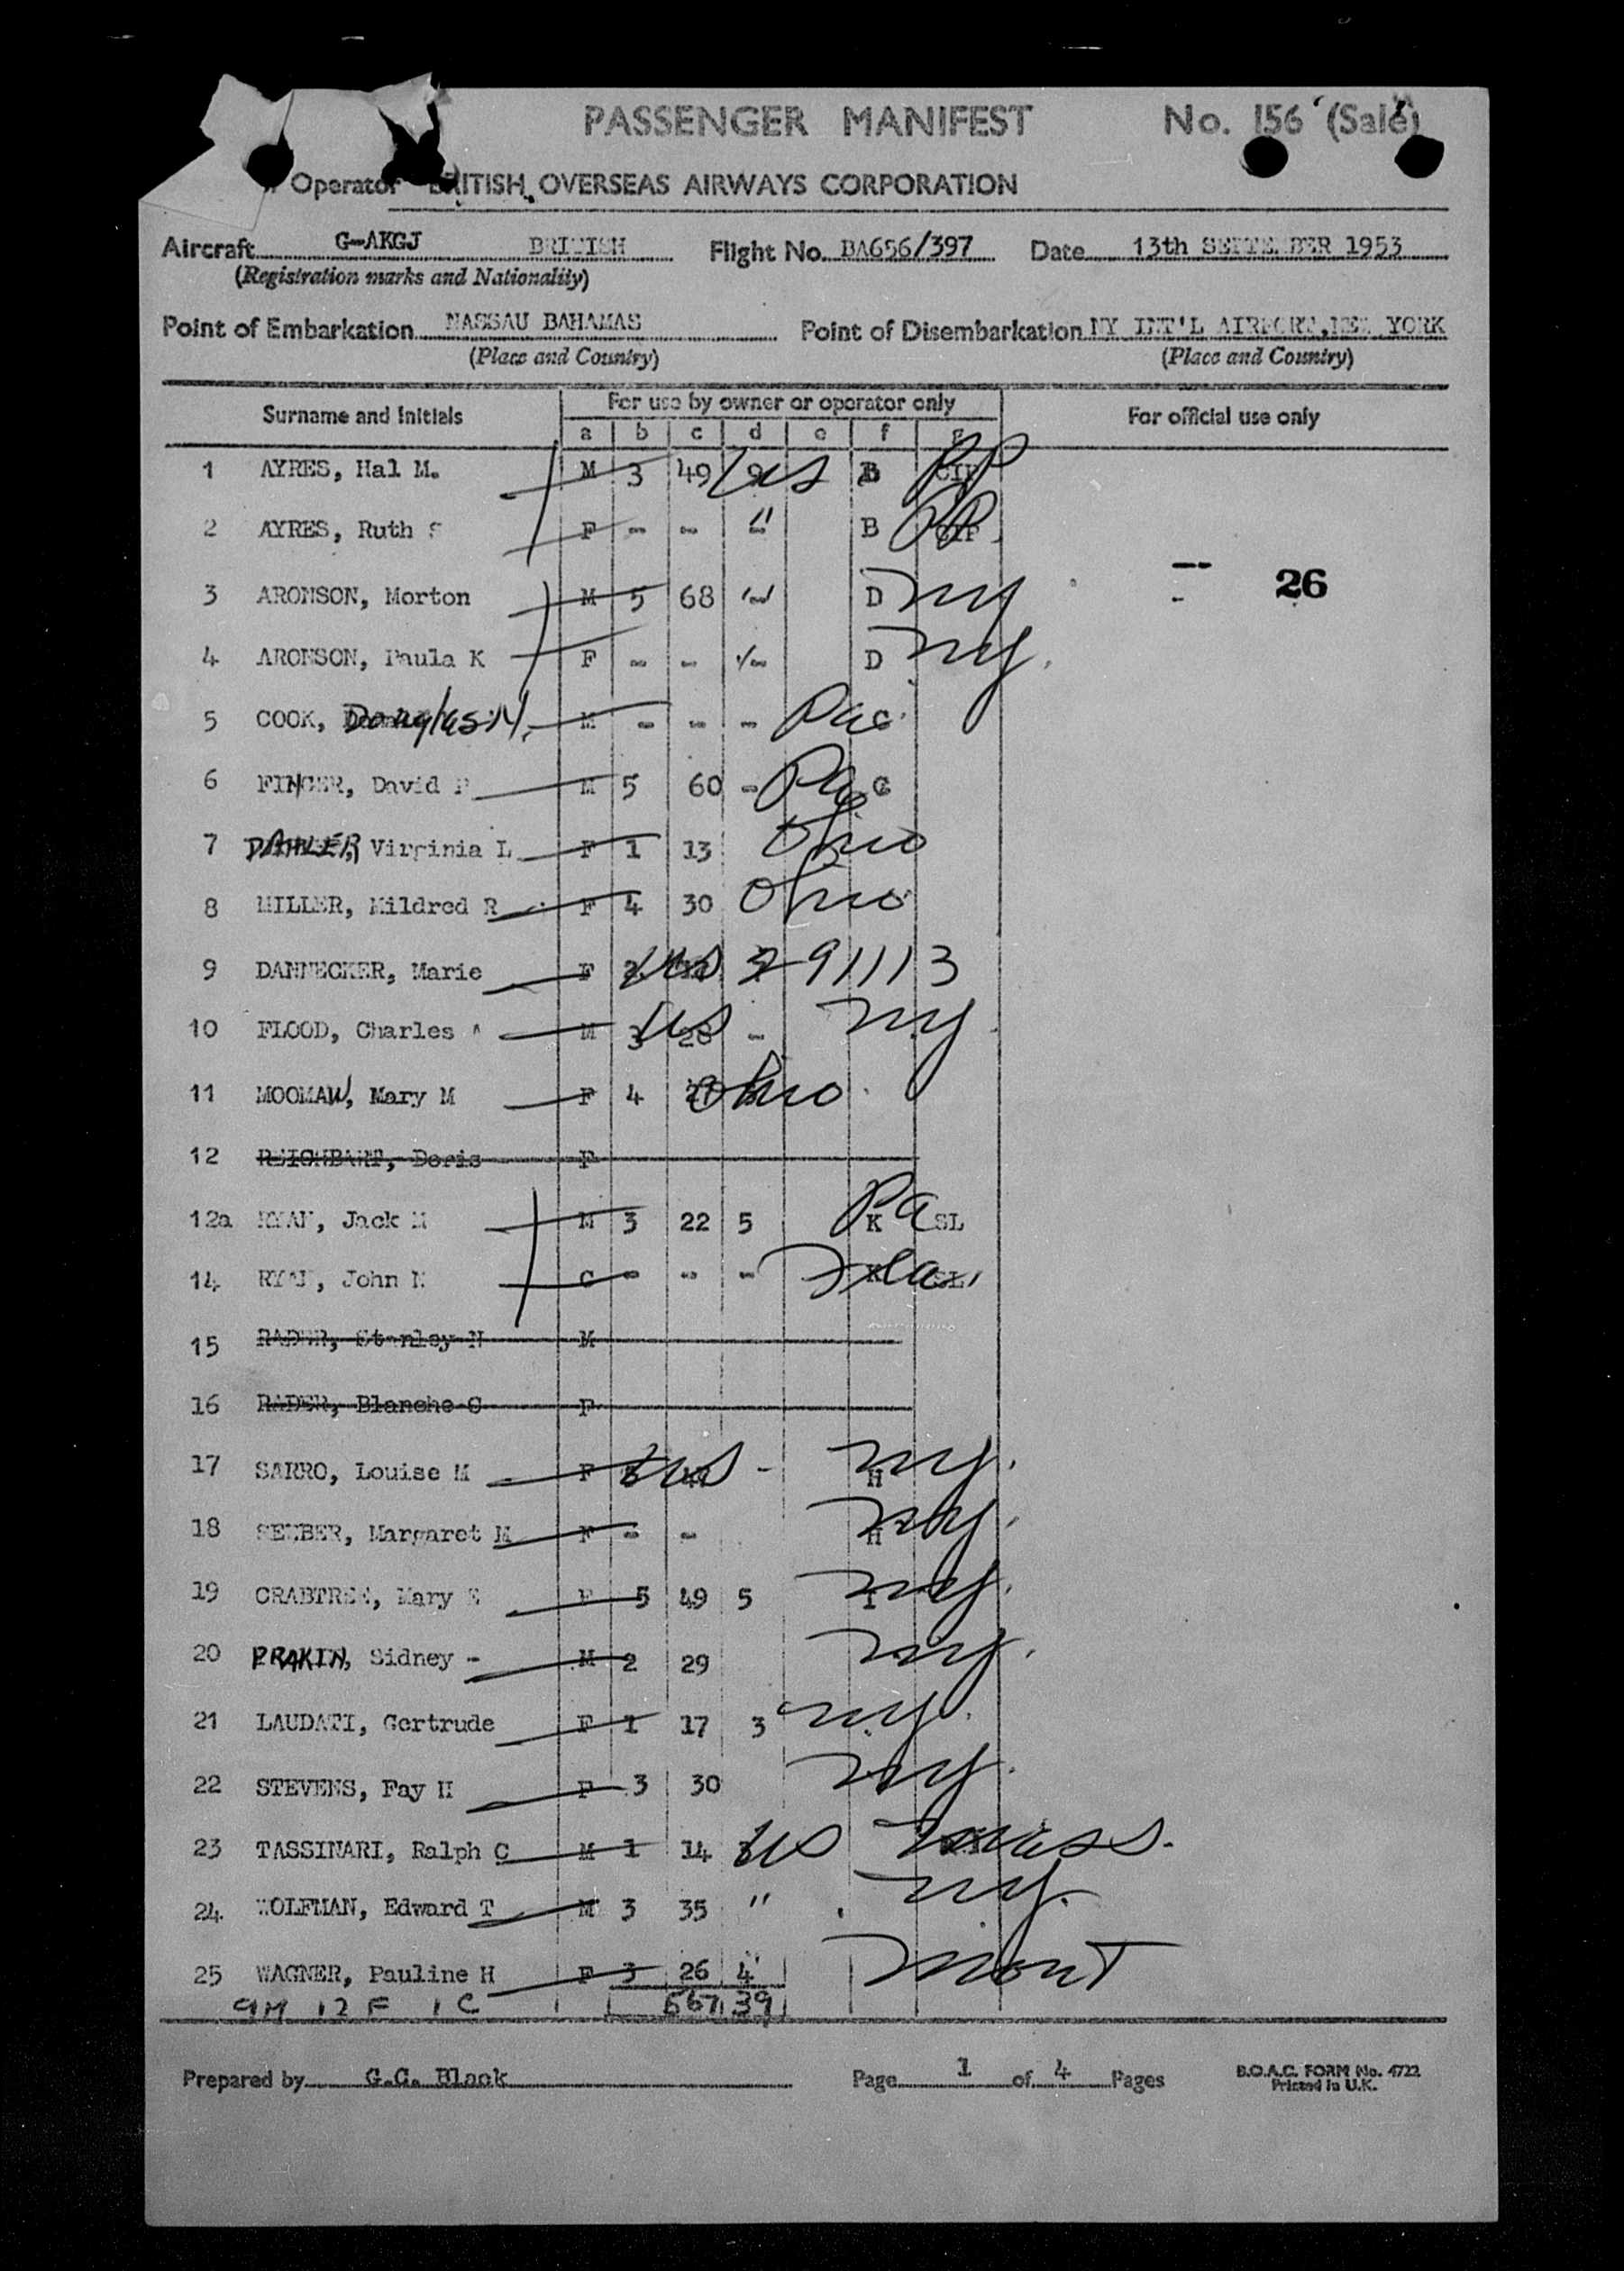 PASSENGER MANIFEST No. 156 (Sale)
Operator BRITISH OVERSEAS AIRWAYS CORPORATION
Aircraft G-AKGJ BRITISH Flight No. BA656/397 Date 13th SEPTEMBER 1953
(Registration marks and Nationality)
Point of Embarkation NASSAU BAHAMAS Point of Disembarkation NY INT'L AIRPORT, NEW YORK
(Place and Country) (Place and Country)
Surname and Initials For use by owner or operator only For official use only
a b c d e f g
1 AYRES, Hal M. M 3 49 US B PP
2 AYRES, Ruth S F - - " B PP
26
3 ARONSON, Morton M 5 68 D NY
4 ARONSON, Paula K F - - D NY.
5 COOK, Douglas N. M - - - Pa C
6 FINGER, David M 5 60 - Pa C
7 DAHLER, Virginia L F 1 13 Ohio
8 MILLER, Mildred R F 4 30 Ohio
9 DANNECKER, Marie F US 291113
10 FLOOD, Charles A M 3 US 28 - NY
11 MOOMAW, Mary M F 4 Ohio
12 REICHBART, Doris F
12a RYAN, Jack M M 3 22 5 K Pa SL
14 RYAN, John N C - - - K Fla. SL
15 RADER, Stanley N M
16 RADER, Blanche C F
17 SARRO, Louise M F US - H NY.
18 Margaret M F - - H NY.
19 CRABTREE, Mary E F 5 49 5 I NY.
20 PRAKIN, Sidney - M 2 29 NY.
21 LAUDATI, Gertrude F 1 17 3 NY.
22 STEVENS, Fay H F 3 30 NY.
23 TASSINARI, Ralph C M 1 14 US Mass.
24 WOLFMAN, Edward T M 3 35 " NY.
25 WAGNER, Pauline H F 3 26 4 Mont
9M 12F 1C 667 39
Prepared by G.C. Black Page 1 of 4 Pages B.O.A.C. FORM No. 4722
Printed in U.K.